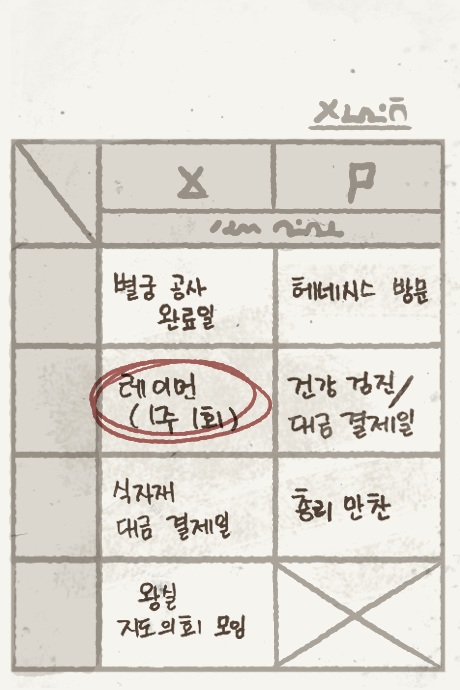 별궁 공사
완료일
헤네시스 방문
레이먼
(1주 1회)
건강 검진/
대금 결제일
식자재
대금 결제일
총리 만찬
왕실
지도의회 모임